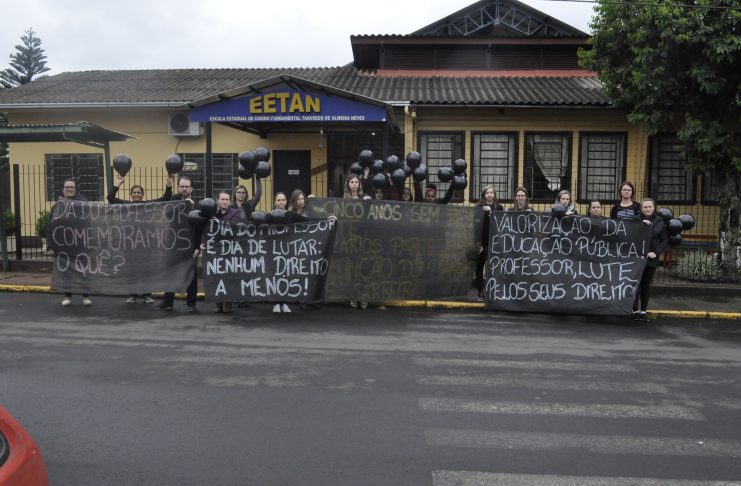 EETAN
ESCOLA ESTADUAL DE ENSINO FUNDAMENTAL TANCREDO DE ALMEIDA NEVES
DIA DO PROFESSOR
COMEMORAMOS
O QUÊ?
DIA DO PROFESSOR
É DIA DE LUTAR:
NENHUM DIREITO
A MENOS!
CINCO ANOS SEM
VALORIZAÇÃO DA
EDUCAÇÃO PÚBLICA!
PROFESSOR, LUTE
PELOS SEUS DIREITOS!